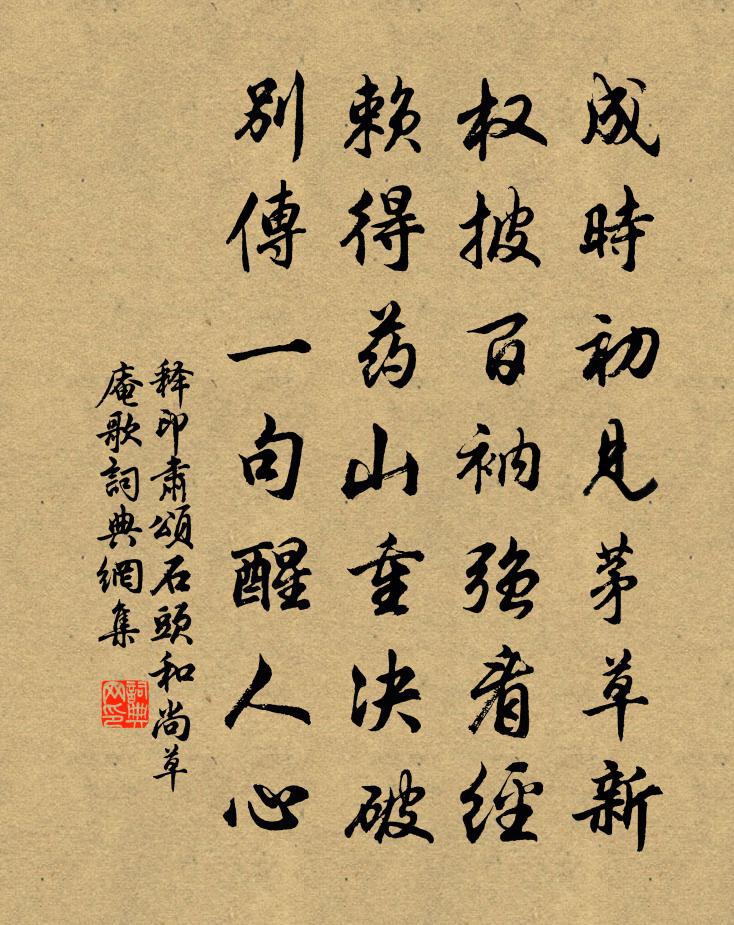 成時初見茅草新
权披百衲强看經
赖得药山重决破
别傳一句醒人心
释印肅頌石頭和尚草
庵歌詞典網集
詞典
网印